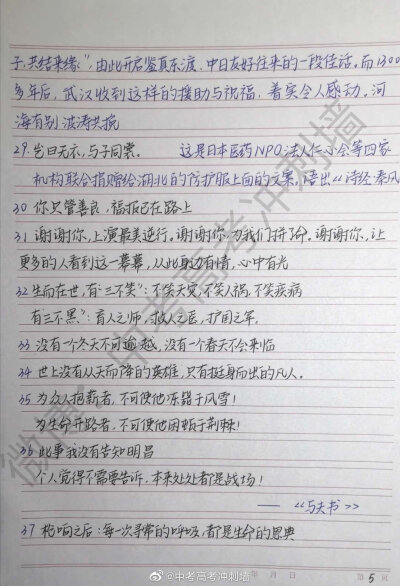 子,共结来缘",由此开启鉴真东渡、中日友好往来的一段佳话。而1300
多年后,武汉收到这样的援助与祝福,着实令人感动。河
海有别 波涛共挽
29.岂曰无衣,与子同裳。 这是日本医药NPO法人仁心会等四家
机构联合捐赠给湖北的防护服上面的文案,语出《诗经·秦风
30 你只管善良,福报已在路上
31 谢谢你,上演最美逆行。谢谢你,为我们拼了命。谢谢你、让
更多的人看到这一幕幕,从此身边有情,心中有光
32 生而在世,有"三不笑":不笑天灾,不笑人祸,不笑疾病
有三不黑":育人之师,救人之医,护国之军。
33 没有一个冬天不可逾越,没有一个春天不会来临
34 世上没有从天而降的英雄,只有挺身而出的凡人。
35 为众人抱薪者,不可使他冻毙于风雪!
为生命开路者,不可使他困顿于荆棘!
36 此事我没有告知明昌
个人觉得不需要告诉,本来处处都是战场!
——《与夫书》
37 枪响之后:每一次寻常的呼吸,都是生命的恩典
年 月 日 第 5 页
微博:中考高考冲刺墙
@中考高考冲刺墙